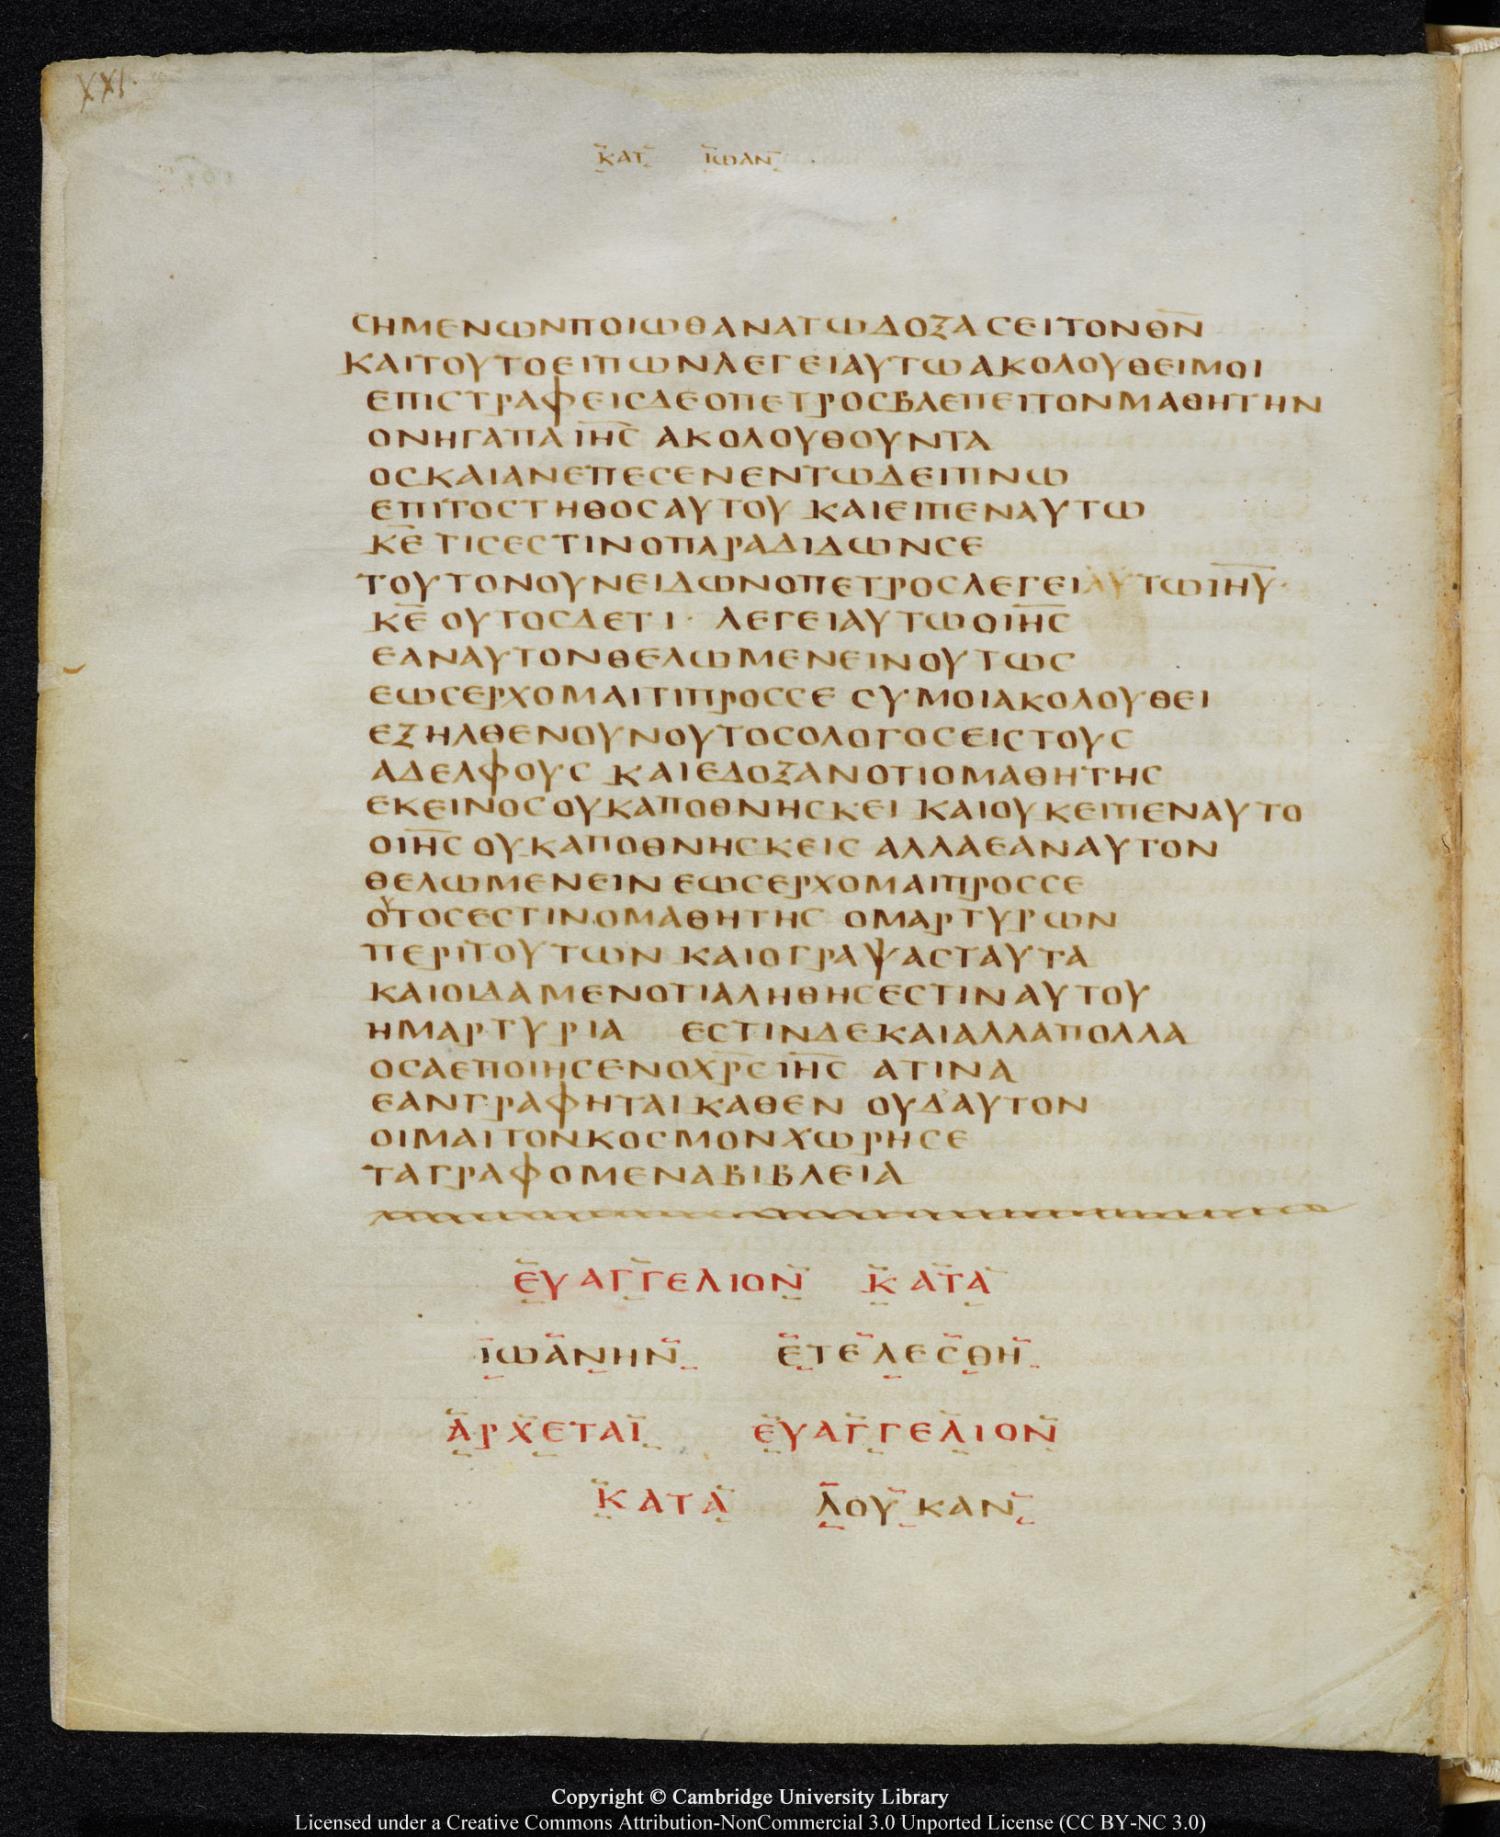 XXI.
ΚΑΤ ΙΩΑΝ
ϹΗΜΕΝΩΝΠΟΙΩΘΑΝΑΤΩΔΟΞΑϹΕΙΤΟΝΘ̅Ν̅
ΚΑΙΤΟΥΤΟΕΙΠΩΝΛΕΓΕΙΑΥΤΩΑΚΟΛΟΥΘΕΙΜΟΙ
ΕΠΙϹΤΡΑΦΕΙϹΔΕΟΠΕΤΡΟϹΒΛΕΠΕΙΤΟΝΜΑΘΗΤΗΝ
ΟΝΗΓΑΠΑ Ι̅Η̅Ϲ̅ ΑΚΟΛΟΥΘΟΥΝΤΑ
ΟϹΚΑΙΑΝΕΠΕϹΕΝΕΝΤΩΔΕΙΠΝΩ
ΕΠΙΤΟϹΤΗΘΟϹΑΥΤΟΥ ΚΑΙΕΙΠΕΝΑΥΤΩ
Κ̅Ε̅ ΤΙϹΕϹΤΙΝΟΠΑΡΑΔΙΔΩΝϹΕ
ΤΟΥΤΟΝΟΥΝΕΙΔΩΝΟΠΕΤΡΟϹΛΕΓΕΙΑΥΤΩΙ̅Η̅Υ̅·
Κ̅Ε̅ ΟΥΤΟϹΔΕΤΙ· ΛΕΓΕΙΑΥΤΩΟΙ̅Η̅Ϲ̅
ΕΑΝΑΥΤΟΝΘΕΛΩΜΕΝΕΙΝΟΥΤΩϹ
ΕΩϹΕΡΧΟΜΑΙΤΙΠΡΟϹϹΕ ϹΥΜΟΙΑΚΟΛΟΥΘΕΙ
ΕΞΗΛΘΕΝΟΥΝΟΥΤΟϹΟΛΟΓΟϹΕΙϹΤΟΥϹ
ΑΔΕΛΦΟΥϹ ΚΑΙΕΔΟΞΑΝΟΤΙΟΜΑΘΗΤΗϹ
ΕΚΕΙΝΟϹΟΥΚΑΠΟΘΝΗϹΚΕΙ ΚΑΙΟΥΚΕΙΠΕΝΑΥΤΟ
ΟΙ̅Η̅Ϲ̅ ΟΥΚΑΠΟΘΝΗϹΚΕΙϹ ΑΛΛΑΕΑΝΑΥΤΟΝ
ΘΕΛΩΜΕΝΕΙΝ ΕΩϹΕΡΧΟΜΑΙΠΡΟϹϹΕ
ΟΥΤΟϹΕϹΤΙΝΟΜΑΘΗΤΗϹ ΟΜΑΡΤΥΡΩΝ
ΠΕΡΙΤΟΥΤΩΝ ΚΑΙΟΓΡΑΨΑϹΤΑΥΤΑ
ΚΑΙΟΙΔΑΜΕΝΟΤΙΑΛΗΘΗϹΕϹΤΙΝΑΥΤΟΥ
ΗΜΑΡΤΥΡΙΑ ΕϹΤΙΝΔΕΚΑΙΑΛΛΑΠΟΛΛΑ
ΟϹΑΕΠΟΙΗϹΕΝΟΧ̅Ρ̅Ϲ̅Ι̅Η̅Ϲ̅ ΑΤΙΝΑ
ΕΑΝΓΡΑΦΗΤΑΙΚΑΘΕΝ ΟΥΔΑΥΤΟΝ
ΟΙΜΑΙΤΟΝΚΟϹΜΟΝΧΩΡΗϹΕ
ΤΑΓΡΑΦΟΜΕΝΑΒΙΒΛΕΙΑ
ΕΥΑΓΓΕΛΙΟΝ ΚΑΤΑ
ΙΩΑΝΗΝ ΕΤΕΛΕϹΘΗ
ΑΡΧΕΤΑΙ ΕΥΑΓΓΕΛΙΟΝ
ΚΑΤΑ ΛΟΥΚΑΝ
Copyright © Cambridge University Library
Licensed under a Creative Commons Attribution-NonCommercial 3.0 Unported License (CC BY-NC 3.0)